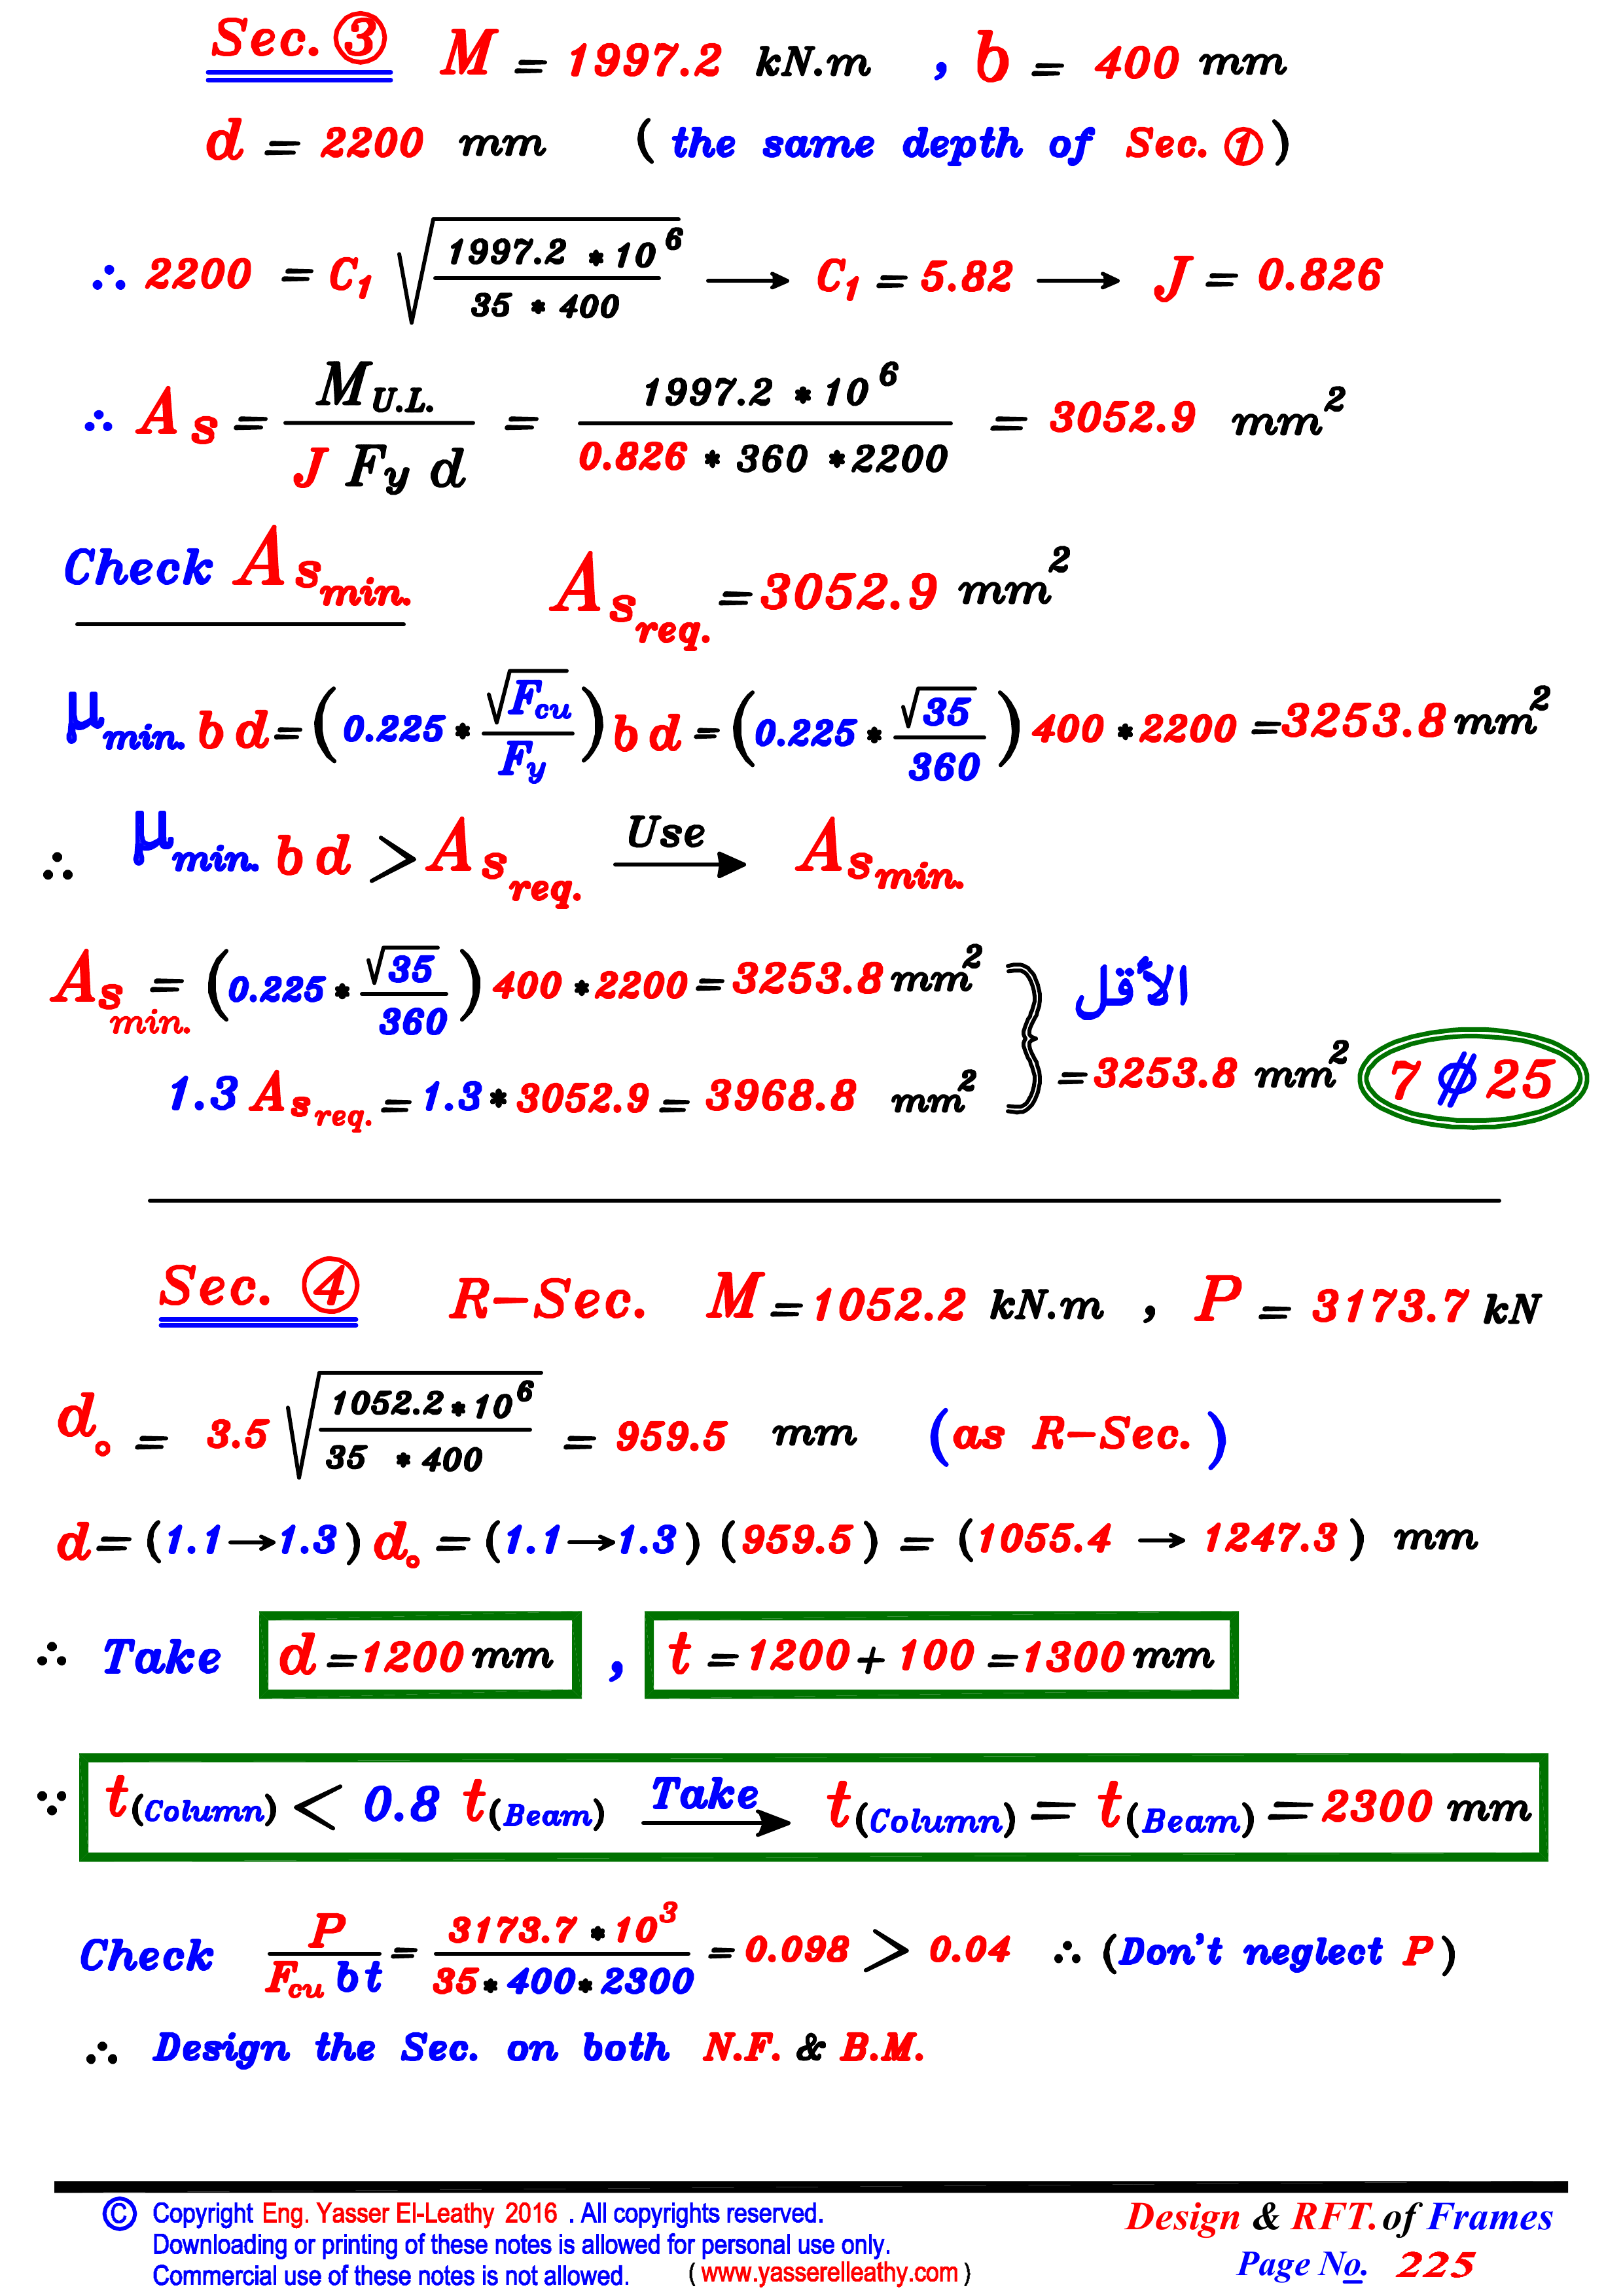 Sec. ③ M = 1997.2 kN.m , b = 400 mm
d = 2200 mm ( the same depth of Sec. ① )
∴ 2200 = C₁ √(1997.2 * 10⁶ / 35 * 400) → C₁ = 5.82 → J = 0.826
∴ As = M U.L. / J Fy d = 1997.2 * 10⁶ / 0.826 * 360 * 2200 = 3052.9 mm²
Check As min. As req. = 3052.9 mm²
μ min. b d = (0.225 * √Fcu / Fy) b d = (0.225 * √35 / 360) 400 * 2200 = 3253.8 mm²
∴ μ min. b d > As req. Use → As min.
As min. = (0.225 * √35 / 360) 400 * 2200 = 3253.8 mm² } الأقل
1.3 As req. = 1.3 * 3052.9 = 3968.8 mm² = 3253.8 mm² 7 ⌀ 25
Sec. ④ R-Sec. M = 1052.2 kN.m , P = 3173.7 kN
d₀ = 3.5 √(1052.2 * 10⁶ / 35 * 400) = 959.5 mm (as R-Sec.)
d = (1.1 → 1.3) d₀ = (1.1 → 1.3) (959.5) = (1055.4 → 1247.3) mm
∴ Take d = 1200 mm , t = 1200 + 100 = 1300 mm
∵ t (Column) < 0.8 t (Beam) Take → t (Column) = t (Beam) = 2300 mm
Check P / Fcu b t = 3173.7 * 10³ / 35 * 400 * 2300 = 0.098 > 0.04 ∴ (Don't neglect P)
∴ Design the Sec. on both N.F. & B.M.
© Copyright Eng. Yasser El-Leathy 2016 . All copyrights reserved.
Downloading or printing of these notes is allowed for personal use only.
Commercial use of these notes is not allowed. ( www.yasserelleathy.com )
Design & RFT. of Frames
Page No. 225